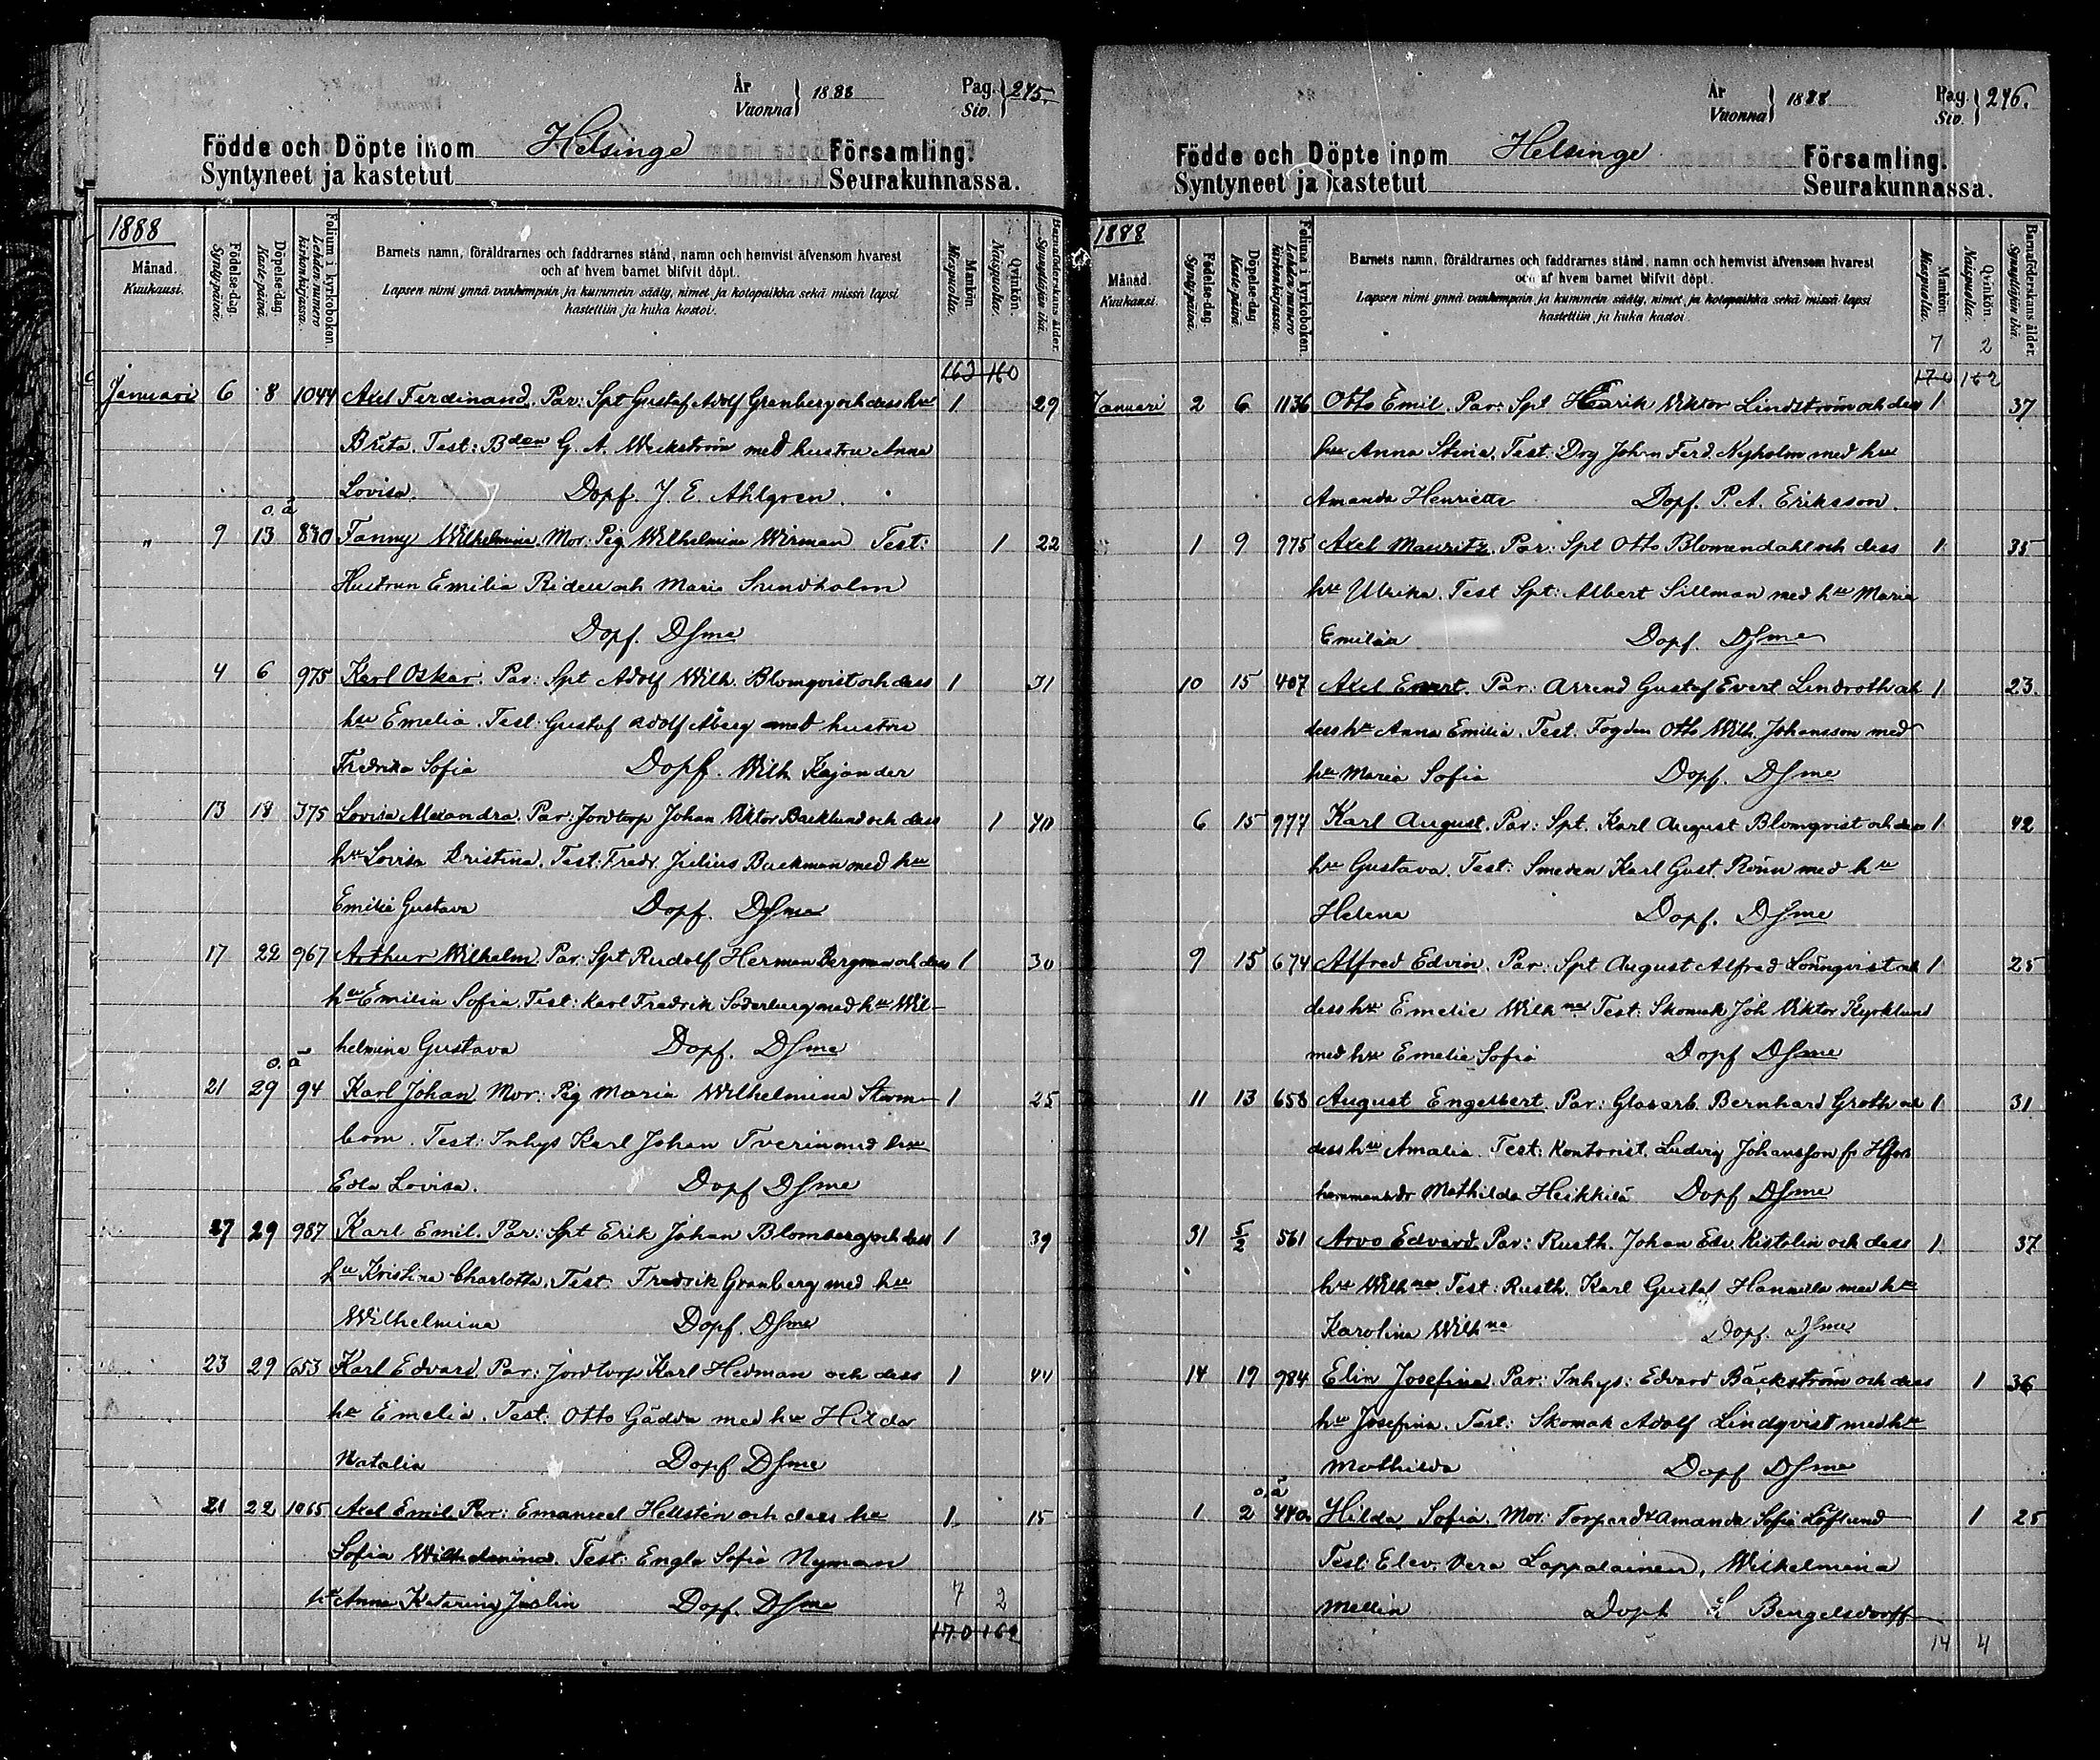 År
Vuonna } 1888
Pag.
Siv. } 245.
Födde och Döpte inom Helsinge Församling.
Syntyneet ja kastetut Seurakunnassa.
1888
Månad.
Kuukausi.
Födelse-dag.
Syntypäivä.
Döpelse-dag.
Kastepäivä.
Folium i kyrkoboken.
Lehden numero kirkonkirjassa.
Barnets namn, föräldrarnes och faddrarnes stånd, namn och hemvist äfvensom hvarest
och af hvem barnet blifvit döpt.
Lapsen nimi ynnä vanhempain ja kummein sääty, nimet ja kotopaikka sekä missä lapsi
kastettiin ja kuka kastoi.
Mankön.
Miespuolia.
Qvinkön.
Naispuolia.
Barnaföderskans ålder.
Synnyttäjän ikä.
163 160
Januari 6 8 1044 Axel Ferdinand. Par: Spt Gustaf Adolf Granberg och dess hu 1 29
Brita. Test: Bden G. A. Weckström med hustru Anna
Lovisa. Dopf. J. E. Ahlgren.
o. ä
" 9 13 880 Fanny Wilhelmina. Mor: Pig Wilhelmina Wirman Test: 1 22
Hustrun Emilia Ridell och Maria Sundholm
Dopf. DSme
4 6 975 Karl Oskar. Par: Spt Adolf Wilh. Blomqvist och dess 1 31
hu Emelia. Test: Gustaf Adolf Åberg med hustru
Fredrika Sofia Dopf. Wilh Kajander
13 18 375 Lovisa Alexandra. Par: Jordtorp Johan Viktor Backlund och dess 1 40
hu Lovisa Kristina. Test: Fredr. Julius Backman med hu
Emilia Gustava Dopf. DSme
17 22 967 Arthur Wilhelm. Par: Spt Rudolf Herman Bergman och dess 1 30
hu Emilia Sofia. Test: Karl Fredrik Söderberg med hu Wil-
helmina Gustava Dopf. DSme
o. ä
21 29 94 Karl Johan. Mor: Pig Maria Wilhelmina Storm- 1 25
bom. Test: Inhys Karl Johan Tverin med hu
Edla Lovisa. Dopf DSme
27 29 987 Karl Emil. Par: Spt Erik Johan Blomberg och dess 1 39
hu Kristina Charlotta. Test Fredrik Granberg med hu
Wilhelmina Dopf. DSme
23 29 653 Karl Edvard. Par: Jordtorp Karl Hedman och dess 1 44
hu Emelia. Test: Otto Gädda med hu Hilda
Natalia Dopf DSme
21 22 1065 Axel Emil. Par: Emanuel Hellstén och dess hu 1 15
Sofia Wilhelmina. Test: Engla Sofia Nyman
hu Anna Katarina Juslin Dopf. DSme 7 2
170 162
År
Vuonna } 1888
Pag.
Siv. } 246.
Födde och Döpte inom Helsinge Församling.
Syntyneet ja kastetut Seurakunnassa.
1888
Månad.
Kuukausi.
Födelse-dag.
Syntypäivä.
Döpelse-dag.
Kastepäivä.
Folium i kyrkoboken.
Lehden numero kirkonkirjassa.
Barnets namn, föräldrarnes och faddrarnes stånd, namn och hemvist äfvensom hvarest
och af hvem barnet blifvit döpt.
Lapsen nimi ynnä vanhempain ja kummein sääty, nimet ja kotopaikka sekä missä lapsi
kastettiin ja kuka kastoi.
Mankön.
Miespuolia.
Qvinkön.
Naispuolia.
Barnaföderskans ålder.
Synnyttäjän ikä.
7 2
170 162
Januari 2 6 1136 Otto Emil. Par: Spt Henrik Viktor Lindström och dess 1 37
hu Anna Stina. Test. Drg Johan Ferd. Nyholm med hu
Amanda Henriette Dopf. P. A. Eriksson.
1 9 975 Axel Mauritz. Par: Spt Otto Blomendahl och dess 1 35
hu Ulrika. Test Spt: Albert Sillman med hu Maria
Emilia Dopf. DSme
10 15 407 Axel Evert. Par: Arrend Gustaf Evert Lindroth och 1 23
dess hu Anna Emilia. Test. Fogden Otto Wilh. Johansson med
hu Maria Sofia Dopf. DSme
6 15 977 Karl August. Par: Spt. Karl August Blomqvist och dess 1 42
hu Gustava. Test: Smeden Karl Gust. Rönn med hu
Helena Dopf. DSme
9 15 674 Alfred Edvin. Par: Spt August Alfred Lönnqvist och 1 25
dess hu Emelie Wilhna Test: Skomak Joh Viktor Kyrklund
med hu Emelie Sofia Dopf DSme
11 13 658 August Engelbert. Par: Glasarb. Bernhard Groth och 1 31
dess hu Amalia. Test: Kontorist. Ludvig Johansson fr Hfors
hemmansdr Mathilda Heikkilä Dopf DSme
31 5/2 561 Arvo Edvard. Par: Rusth. Johan Edv. Kistolin och dess 1 37
hu Wilhna. Test: Rusth. Karl Gustaf Hannula med hu
Karolina Wilhna Dopf. DSme
14 19 984 Elin Josefina. Par: Inhys: Edvard Bäckström och dess 1 36
hu Josefina. Test: Skomak Adolf Lindqvist med hu
Mathilda Dopf DSme
o, ä
1 2 440 Hilda Sofia. Mor: Torpardr Amanda Sofia Löflund 1 25
Test: Elev. Vera Lappalainen, Wilhelmina
Mellin Dopf S Bengelsdorff
14 4